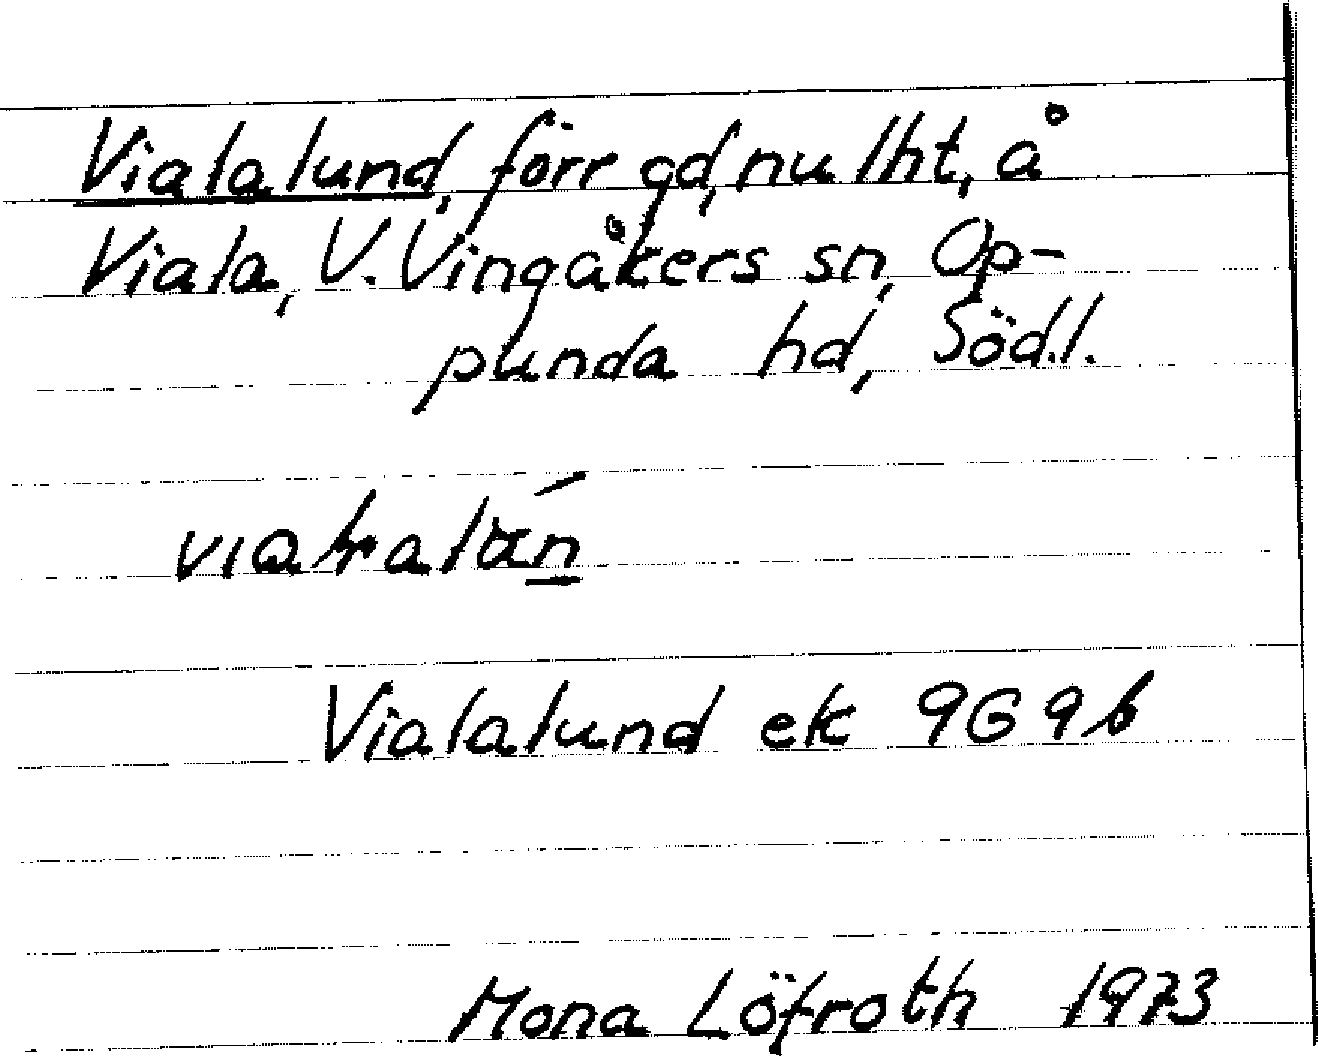 Vialalund, förr gd, nu lht, å
Viala, V. Vingåkers sn, Op-
punda hd, Söd.l.
Vialalund ek 9G9b
Mona Löfroth 1973